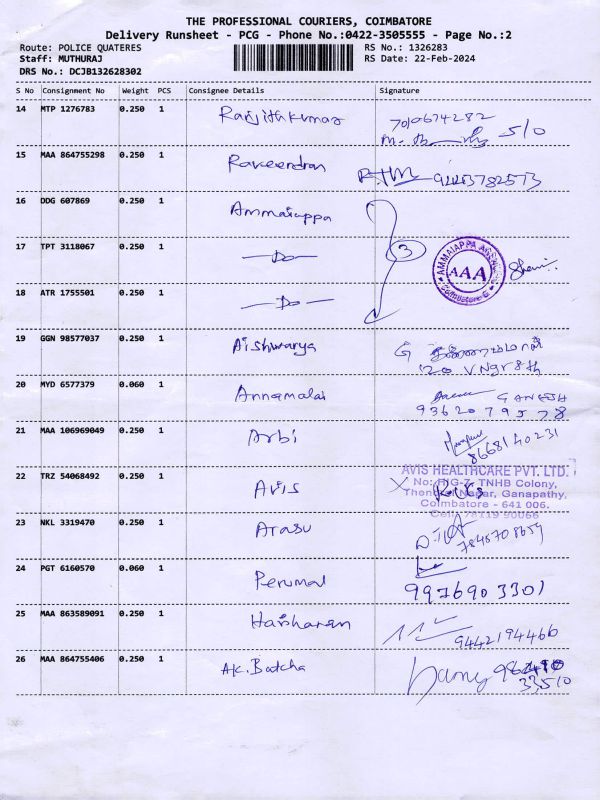 THE PROFESSIONAL COURIERS, COIMBATORE
Delivery Runsheet - PCG - Phone No.:0422-3505555 - Page No.:2
Route: POLICE QUATERES RS No.: 1326283
Staff: MUTHURAJ RS Date: 22-Feb-2024
DRS No.: DCJB132628302
S No Consignment No Weight PCS Consignee Details Signature
14 MTP 1276783 0.250 1 Ranjithkumar 7010674282
S/O
15 MAA 864755298 0.250 1 Raveendran
16 DDG 607869 0.250 1 Ammaiappa
17 TPT 3118067 0.250 1 —Do— 3
AMMAIAPPA
AAA
Coimbatore-6
18 ATR 1755501 0.250 1 —Do—
19 GGN 98577037 0.250 1 Aishwarya G
20 VNgr 8th
20 MYD 6577379 0.060 1 Annamalai GANESH
9362079578
21 MAA 106969049 0.250 1 Arbi
8668140231
22 TRZ 54068492 0.250 1 Avis X
AVIS HEALTHCARE PVT. LTD.
No: HIG-7, TNHB Colony,
Nagar, Ganapathy,
Coimbatore - 641 006.
Cell: 78119 90066
23 NKL 3319470 0.250 1 Arasu
7845708659
24 PGT 6160570 0.060 1 Perumal
9976903301
25 MAA 863589091 0.250 1 Hariharan 9442194466
26 MAA 864755406 0.250 1 A.K. Batcha
33510